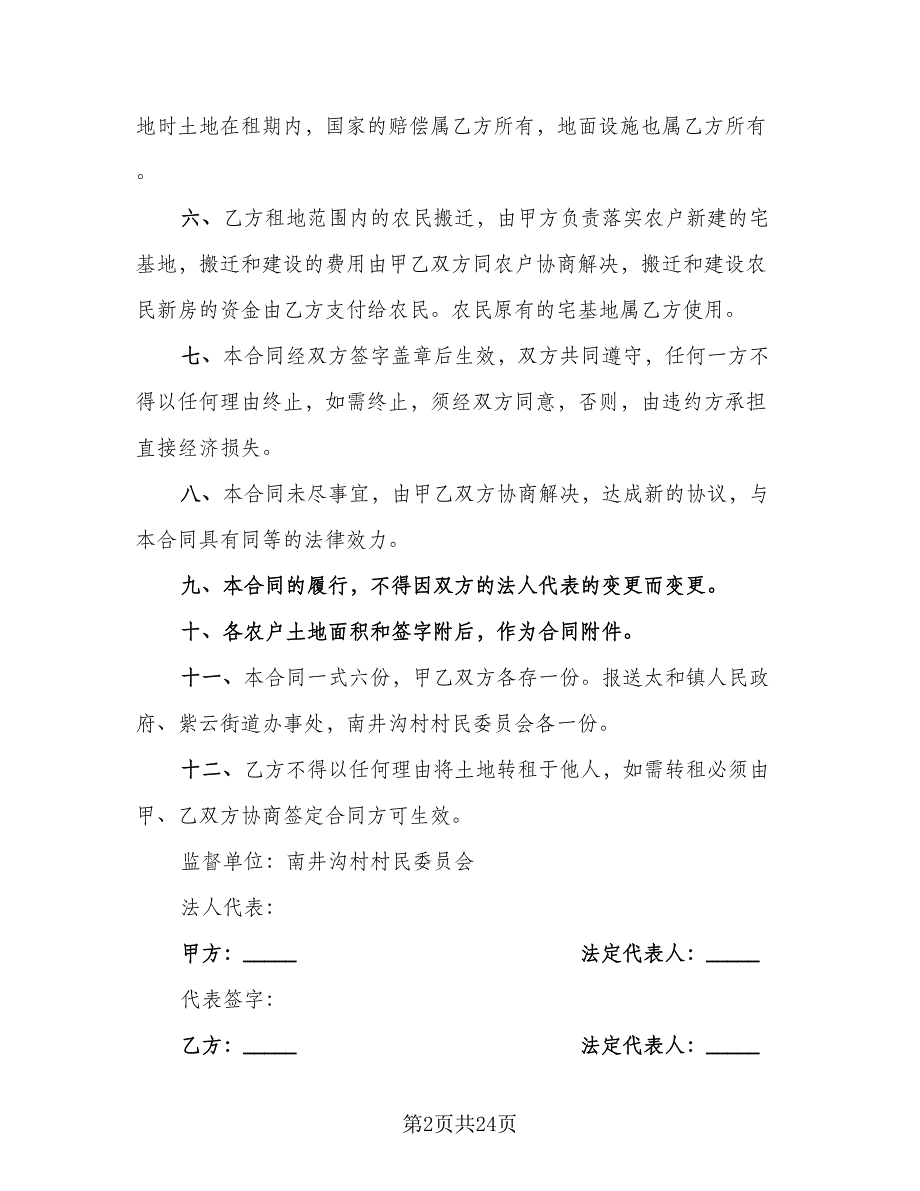 地时土地在租期内，国家的赔偿属乙方所有，地面设施也属乙方所有
。
六、乙方租地范围内的农民搬迁，由甲方负责落实农户新建的宅
基地，搬迁和建设的费用由甲乙双方同农户协商解决，搬迁和建设农
民新房的资金由乙方支付给农民。农民原有的宅基地属乙方使用。
七、本合同经双方签字盖章后生效，双方共同遵守，任何一方不
得以任何理由终止，如需终止，须经双方同意，否则，由违约方承担
直接经济损失。
八、本合同未尽事宜，由甲乙双方协商解决，达成新的协议，与
本合同具有同等的法律效力。
九、本合同的履行，不得因双方的法人代表的变更而变更。
十、各农户土地面积和签字附后，作为合同附件。
十一、本合同一式六份，甲乙双方各存一份。报送太和镇人民政
府、紫云街道办事处，南井沟村村民委员会各一份。
十二、乙方不得以任何理由将土地转租于他人，如需转租必须由
甲、乙双方协商签定合同方可生效。
监督单位：南井沟村村民委员会
法人代表：
甲方：_____ 法定代表人：_____
代表签字：
乙方：_____ 法定代表人：_____
第2页共24页